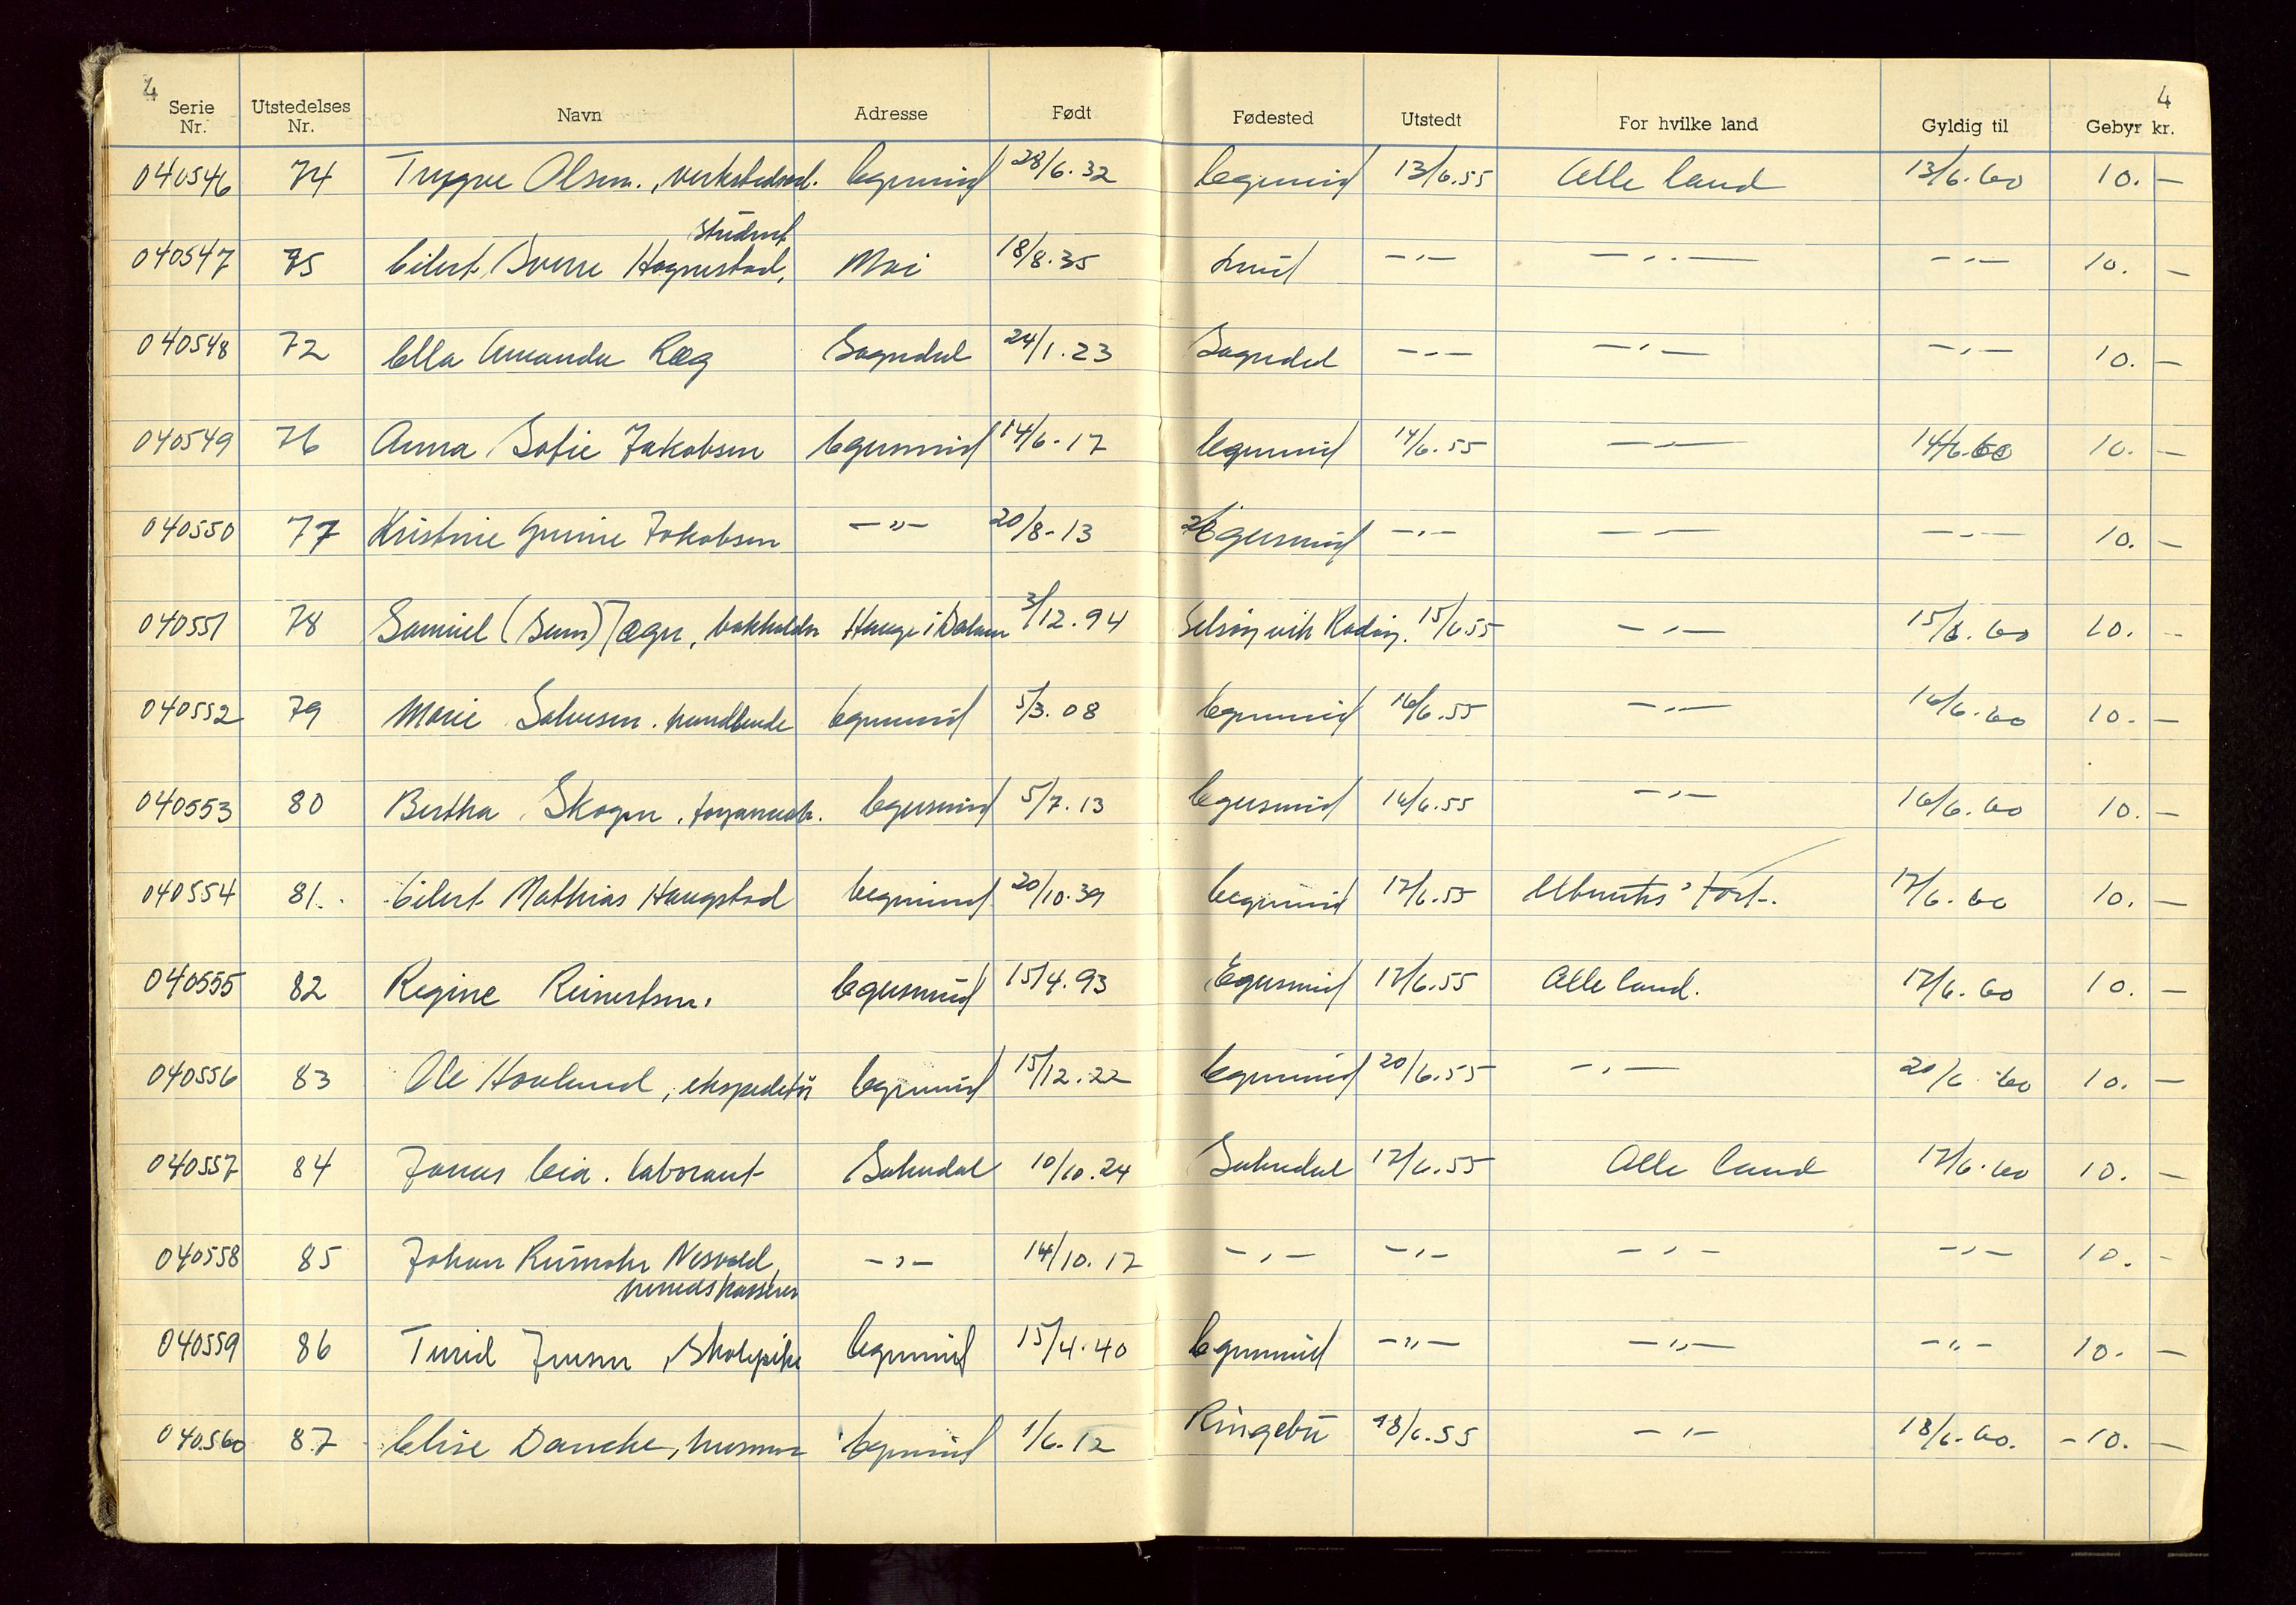 4 4
Serie Nr. Utstedelses Nr. Navn Adresse Født Fødested Utstedt For hvilke land Gyldig til Gebyr kr.
040546 74 Trygve Olsen., Egersund 28/6.32 Egersund 13/6.55 Alle land 13/6.60 10. —
student
040547 75 Eilert Sverre Hognestad, Moi 18/8.35 Lund —〃— —〃— —〃— 10. —
040548 72 Ella Amanda Ræg Sogndal 24/1.23 Sogndal —〃— —〃— —〃— 10. —
040549 76 Anna Sofie Jakobsen Egersund 14/6-17 Egersund 14/6.55 —〃— 14/6.60 10. —
040550 77 Kristine Gurine Jakobsen —〃— 20/8-13 Egersund —〃— —〃— —〃— 10. —
040551 78 Samuel (Sam) Jæger, bokholder Hauge i Dalane 3/12.94 Selsøyvik Rødøy. 15/6.55 —〃— 15/6.60 10. —
040552 79 Marie Salvesen. handlende Egersund 5/3.08 Egersund 16/6.55 —〃— 16/6.60 10. —
040553 80 Bertha Skogen. Egersund 5/7.13 Egersund 16/6.55 —〃— 16/6.60 10. —
040554 81. Eilert Mathias Haugstad Egersund 20/10.39 Egersund 17/6.55 17/6.60 10. —
040555 82 Regine Reinertsen. Egersund 15/4.93 Egersund 17/6.55 Alle land. 17/6.60 10. —
040556 83 Ole Hovland, ekspeditør Egersund 15/12.22 Egersund 20/6.55 —〃— 20/6.60 10. —
040557 84 Jonas Eia. laborant Sokndal 10/10.24 Sokndal 17/6.55 Alle land 17/6.60 10. —
040558 85 Johan Nesvold, —〃— 14/10.17 —〃— —〃— —〃— —〃— 10. —
herredskasserer
040559 86 Turid Jensen, skolepike Egersund 15/4.40 Egersund —〃— —〃— —〃— 10. —
040560 87 Elise Dancke, husmor Egersund 1/6.12 Ringebu 18/6.55 —〃— 18/6.60. -10. —